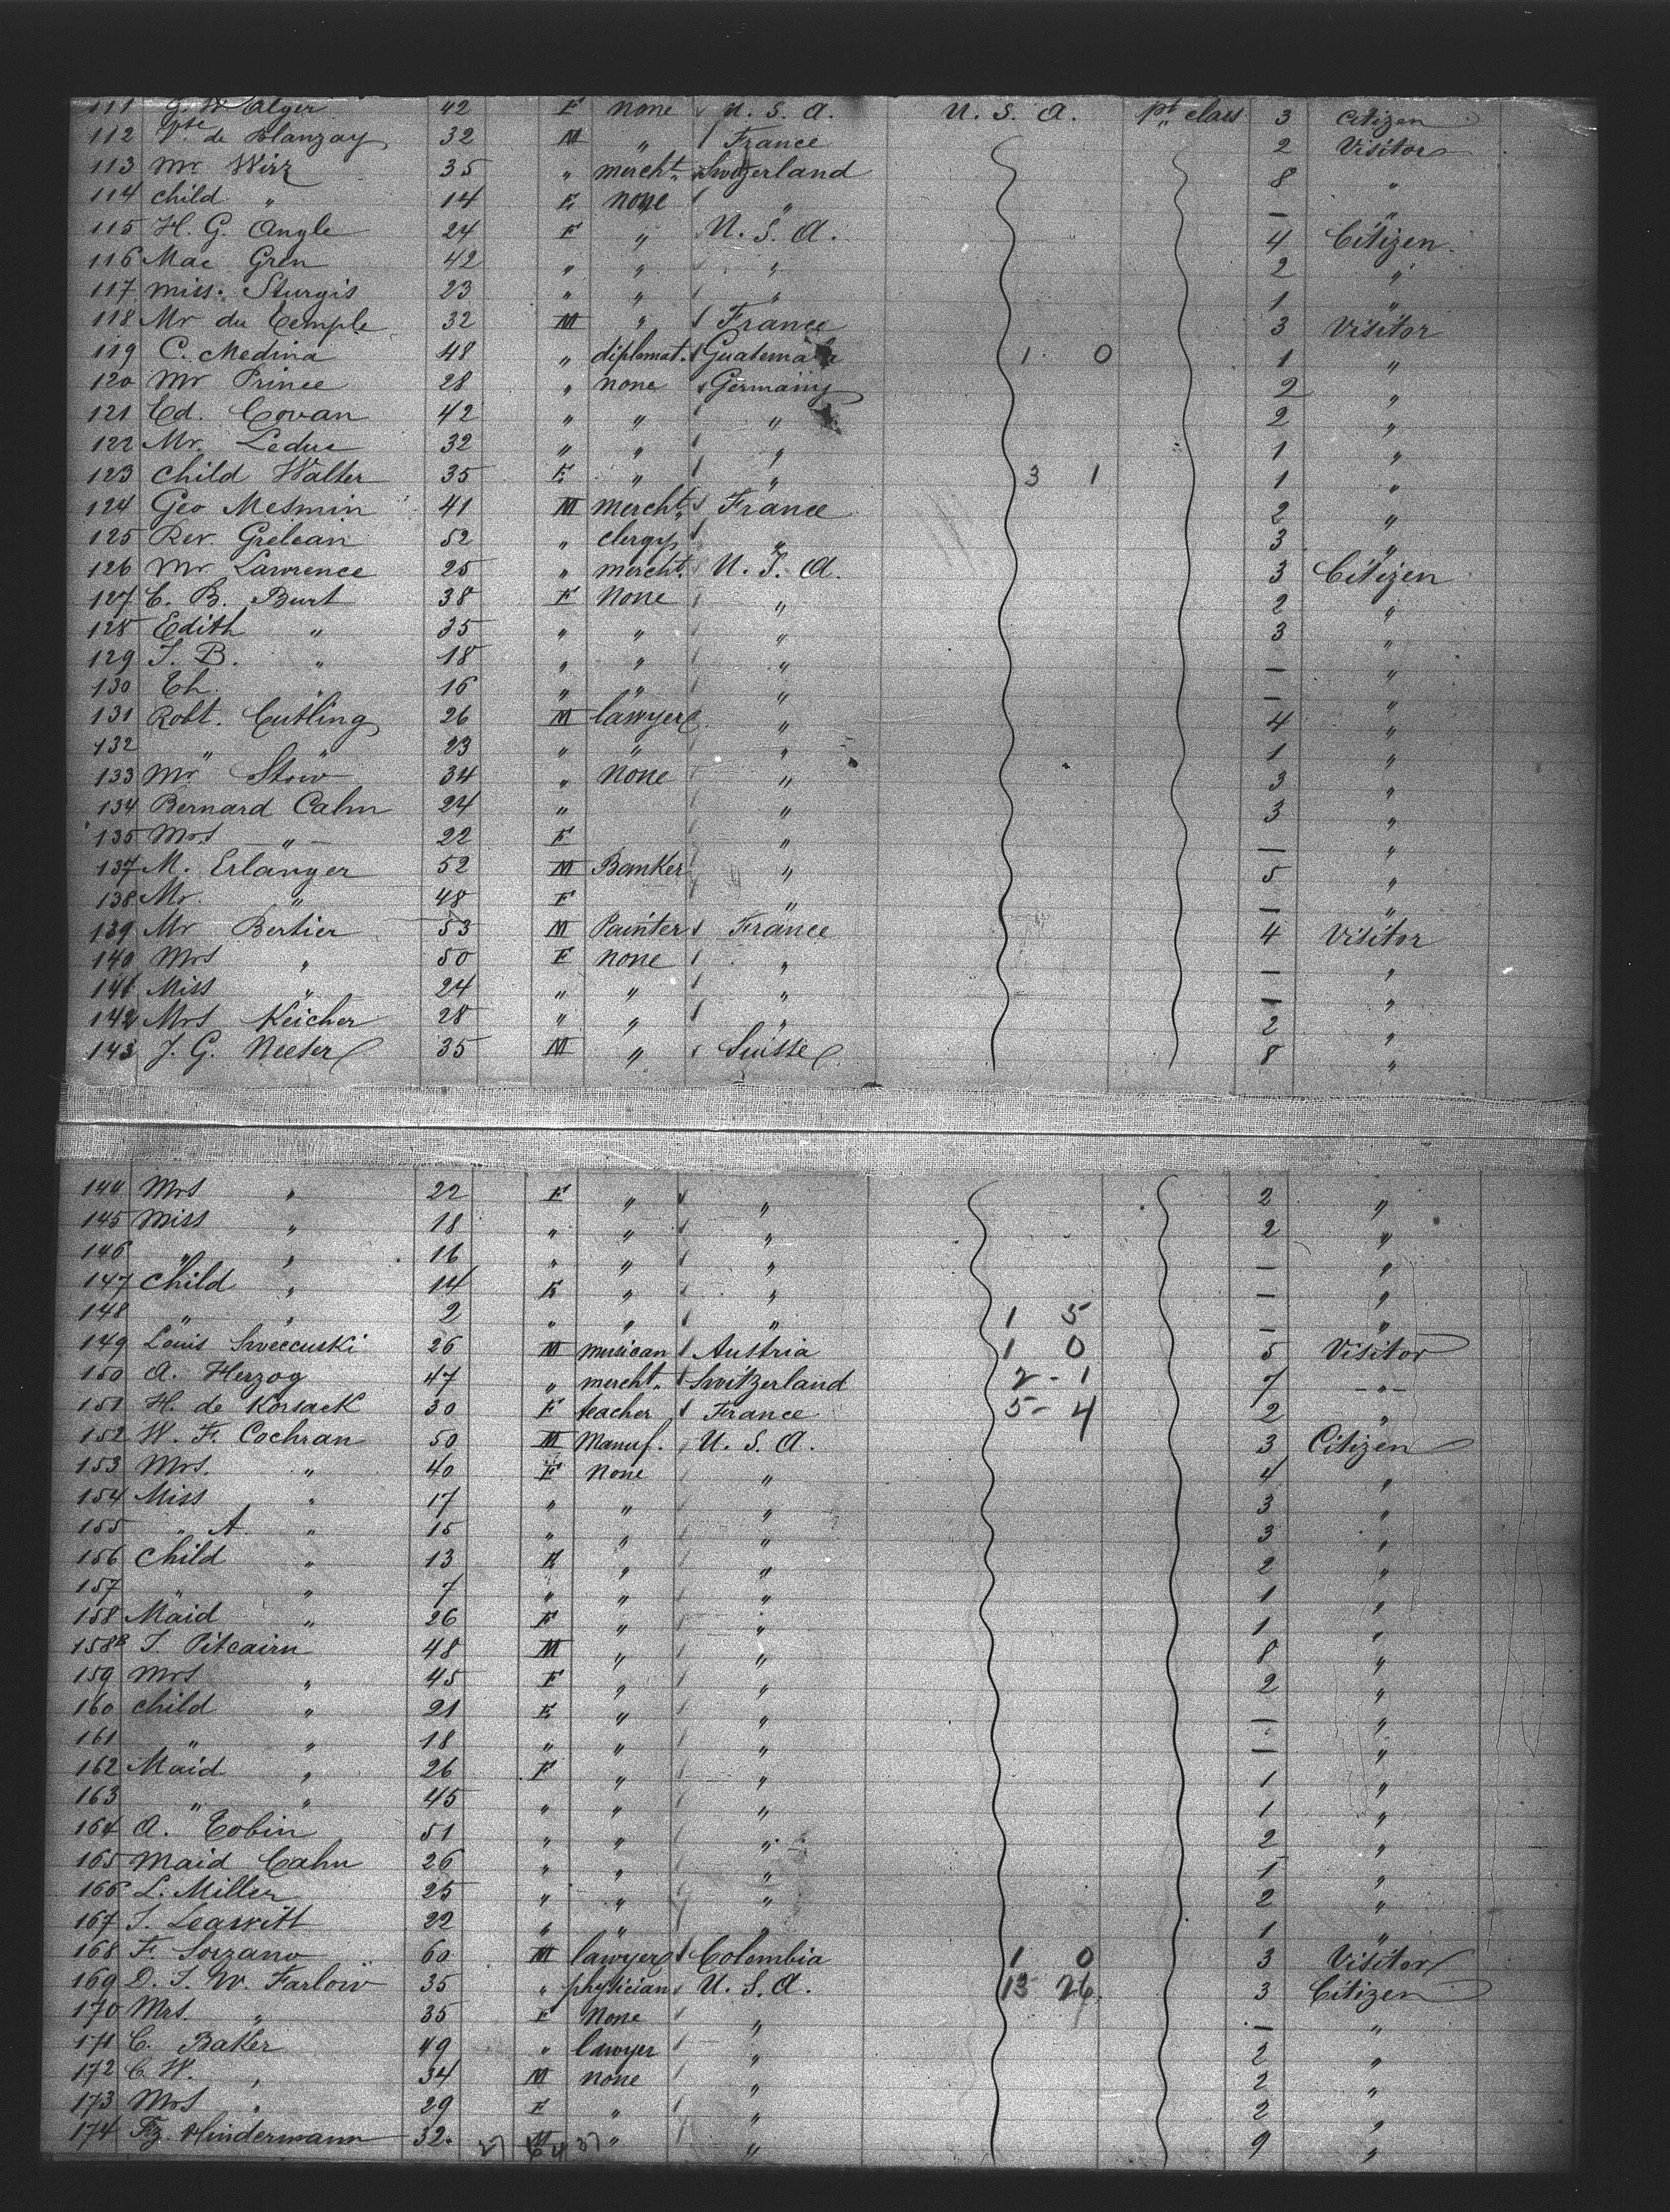 111 G. W. Alger 42 F none U. S. A. U. S. A. 1st class 3 Citizen
112 Vte de Blanzay 32 M " France 2 Visitor
113 Mr Wirz 35 " mercht. Switzerland 8 "
114 child " 14 E none " — "
115 H. G. Angle 24 F " U. S. A. 4 Citizen
116 Mac Gren 42 " " " 2 "
117 miss. Sturgis 23 " " " 1 "
118 Mr du Temple 32 M " France 3 Visitor
119 C. Medina 48 " diplomat. Guatemala 1 0 1 "
120 Mr Prince 28 " none Germany 2 "
121 Ed. Covan 42 " " " 2 "
122 Mr. Leduc 32 " " " 1 "
123 Child Walter 35 E " " 3 1 1 "
124 Geo Mesmin 41 M mercht. France 2 "
125 Rev. Grelean 52 " clergy " 3 "
126 Mr Lawrence 25 " mercht. U. S. A. 3 Citizen
127 C. B. Burt 38 F None " 2 "
128 Edith " 35 " " " 3 "
129 J. B. " 18 " " " — "
130 Th. " 16 " " " — "
131 Robt. Cutling 26 M lawyer " 4 "
132 " " 23 " " " 1 "
133 Mr Stow 34 " none " 3 "
134 Bernard Cahn 24 " " 3 "
135 Mrs " 22 F " — "
137 M. Erlanger 52 M Banker " 5 "
138 Mr. " 48 F " — "
139 Mr Bertier 53 M Painter France 4 Visitor
140 Mrs " 50 F none " — "
141 Miss " 24 " " " — "
142 Mrs Keicher 28 " " " 2 "
143 J. G. Neeser 35 M " Suisse 8 "
144 Mrs " 22 F " " 2 "
145 Miss " 18 " " " 2 "
146 " " 16 " " " — "
147 Child " 14 E " " — "
148 " " 2 " " " 1 5 — "
149 Louis Sveccuski 26 M musican Austria 1 0 5 Visitor
150 A. Herzog 47 " mercht. Switzerland 2 - 1 7 - " -
151 H. de Korsack 30 F teacher France 5 - 4 2 "
152 W. F. Cochran 50 M Manuf. U. S. A. 3 Citizen
153 Mrs. " 40 F None " 4 "
154 Miss " 17 " " " 3 "
155 " A. " 15 " " " 3 "
156 Child " 13 E " " 2 "
157 " " 7 " " " 1 "
158 Maid " 26 F " " 1 "
158B J. Pitcairn 48 M " " 8 "
159 Mrs " 45 F " " 2 "
160 child " 21 E " " — "
161 " " 18 " " " — "
162 Maid " 26 F " " 1 "
163 " " 45 " " " 1 "
164 A. Tobin 51 " " " 2 "
165 Maid Cahn 26 " " " 1 "
166 L. Miller 25 " " " 2 "
167 J. Leavitt 22 " " " 1 "
168 F. Sorzano 60 M lawyer Colombia 1 0 3 Visitor
169 D. J. W. Farlow 35 " physician U. S. A. 13 26 3 Citizen
170 Mrs. " 35 F None " — "
171 C. Baker 49 " lawyer " 2 "
172 C. W. " 34 M none " 2 "
173 Mrs " 29 F " " 2 "
174 Fz. Hindermann 32. M " " 9 "